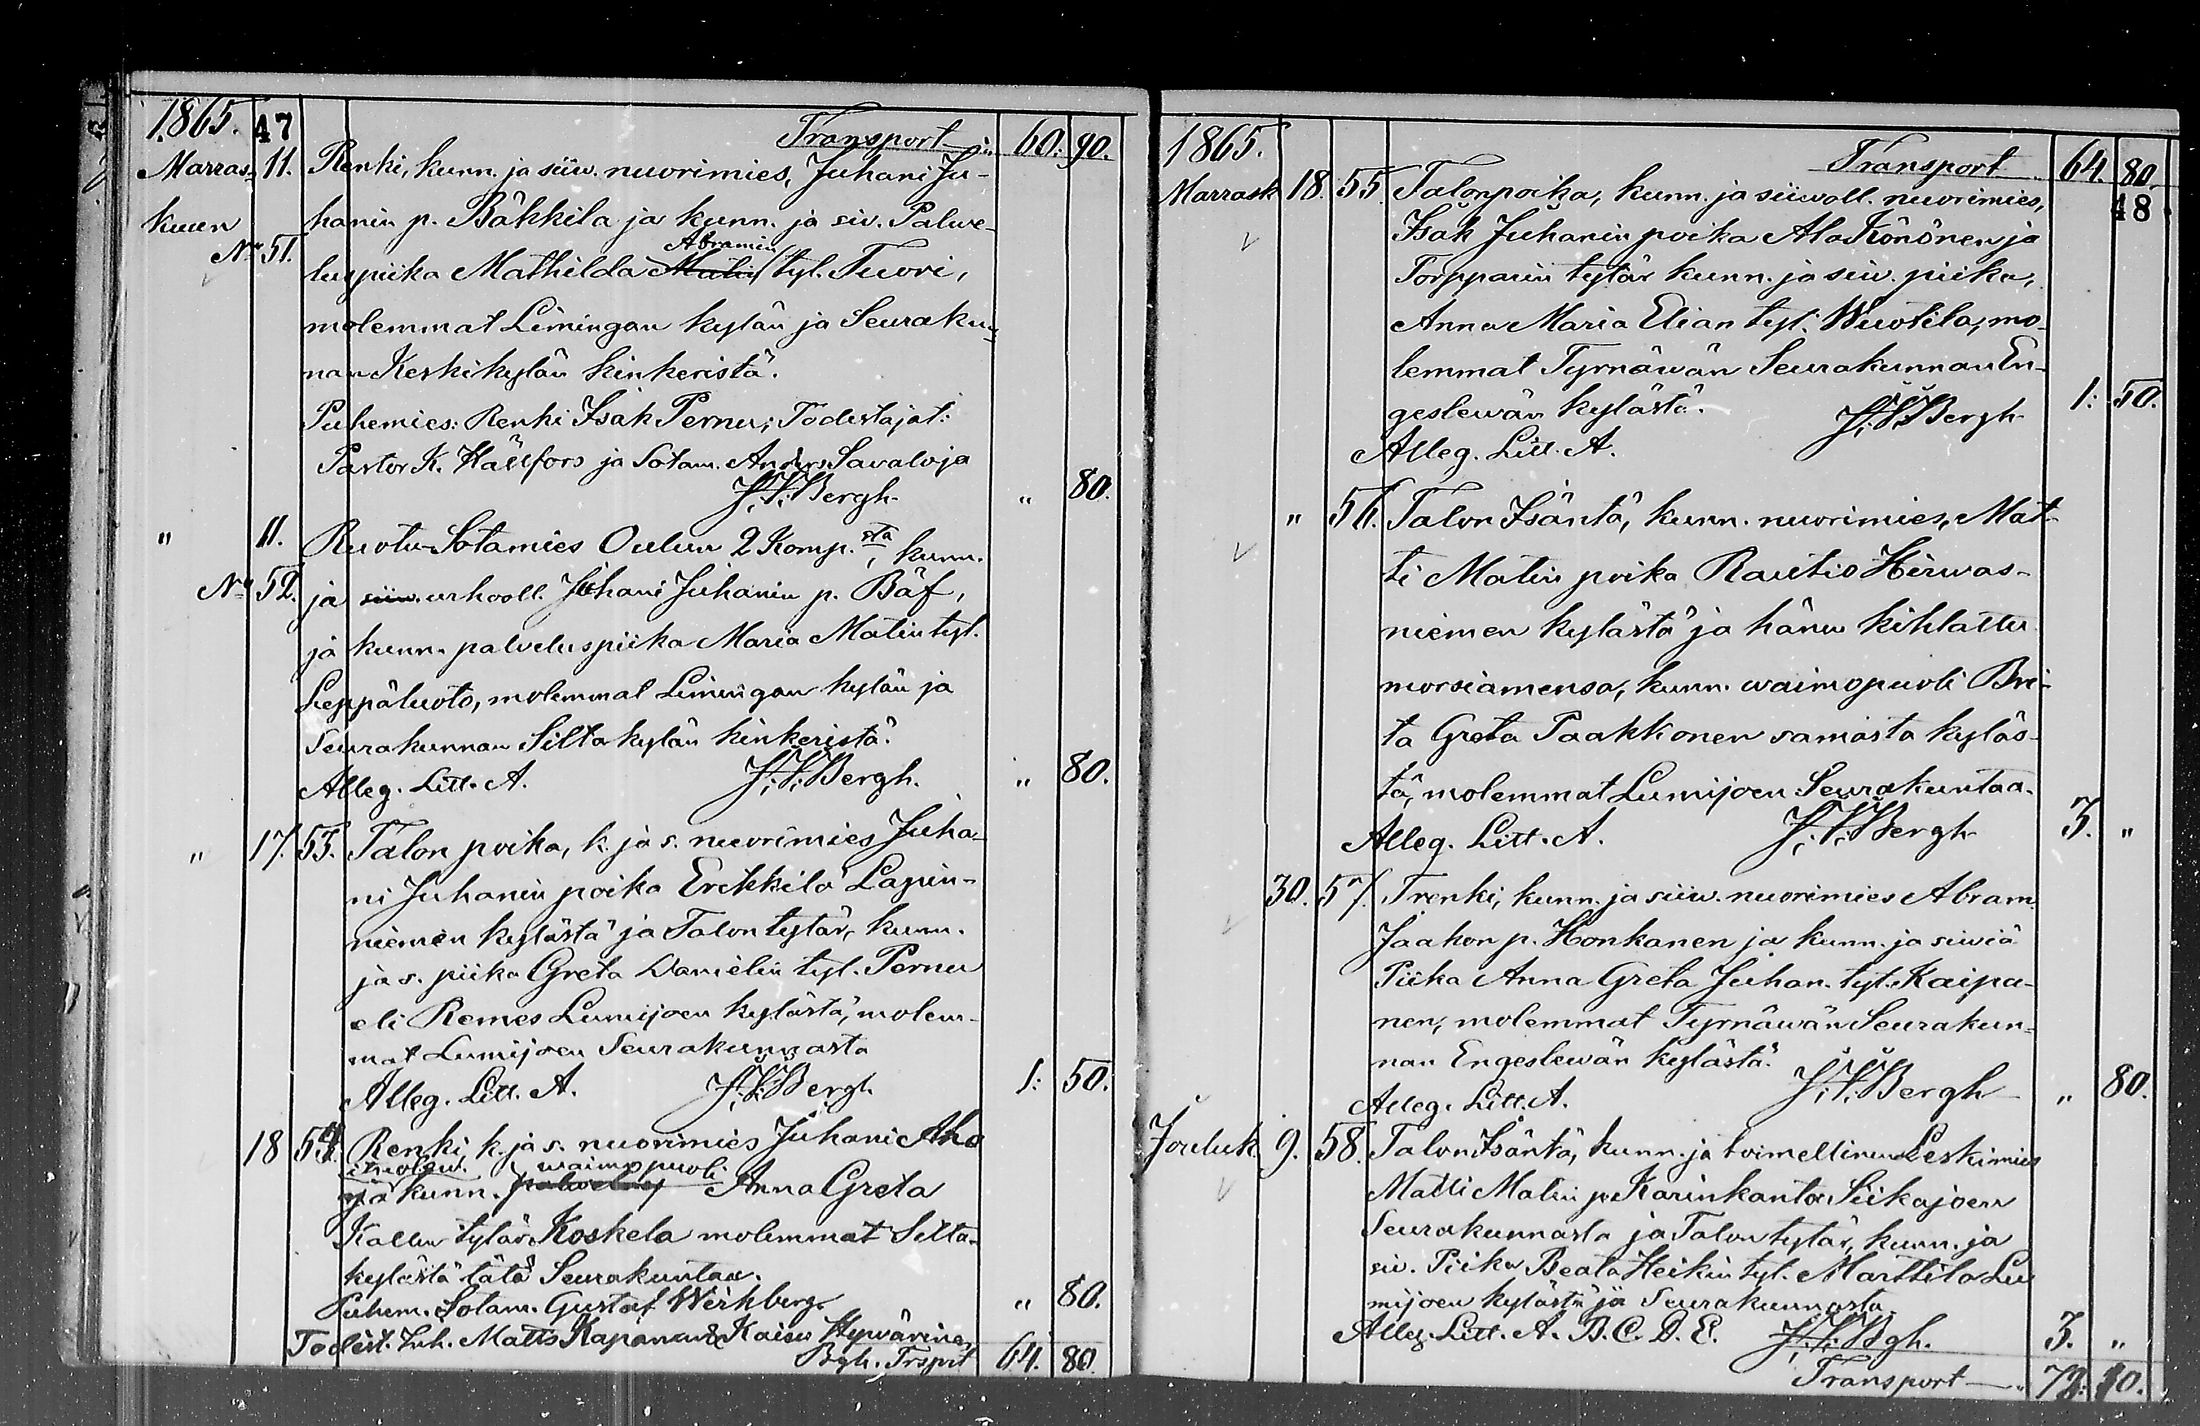 1865. 47 Transport 60: 90.
Marras- 11. Renki, kunn. ja siiw. nuorimies, Juhani Ju-
kuun hanin p. Bäkkilä ja kunn. ja siv. Palwe-
No 51. luspiika Mathilda Matin Abramin tyt. Tuori,
molemmat Limingan kylän ja Seurakun-
nan Keskikylän kinkeristä.
Puhemies: Renki Isak Pernu; Todistajat:
Pastor K. Hällfors ja Sotam. Anders Savaloja
J. V. Bergh. " 80.
" 11. Ruotu-Sotamies Oulun 2 Komp.sta, kunn.
No 52. ja siiw. urhooll. Juhani Juhanin p. Bäf,
ja kunn. palveluspiika Maria Matin tyt.
Leppäluoto, molemmat Limingan kylän ja
Seurakunnan Siltakylän kinkeristä.
Alleg. Litt. A. J. V. Bergh. " 80.
" 17. 53. Talon poika, k. ja s. nuorimies Juha-
ni Juhanin poika Erkkilä Lapin-
niemen kylästä ja Talon tytär, kunn.
ja s. piika Greta Danielin tyt. Pernu
eli Remes Lumijoen kylästä, molem-
mat Lumijoen Seurakunnasta
Alleg. Litt. A. J. V. Bergh. 1: 50.
18 54. Renki, k. ja s. nuorimies Juhani Aho
itsellen. waimopuoli
ja kunn. palvelus Anna Greta
Kallen tytär Koskela molemmat Silta-
kylästä tätä Seurakuntaa.
Puhem. Sotam. Gustaf Werkberg " 80.
Todist. Inh. Matts Kapanen & Kaisu Hywärinen
Bgh. Trsprt 64. 80.
1865. Transport 64. 80.
48
Marrask 18. 55. Talonpoika, kunn. ja siiwoll. nuorimies,
Isak Juhanin poika Ala Könönen ja
Torpparin tytär kunn. ja siw. piika,
Anna Maria Elian tyt. Wuotila, mo-
lemmat Tyrnäwän Seurakunnan En-
geslewän kylästä. J. V. Bergh 1: 50.
Alleg. Litt. A.
" 56. Talon Isäntä, kunn. nuorimies, Mat-
ti Matin poika Rautio Hirwas-
niemen kylästä ja hänen kihlattu
morsiamensa, kunn. waimopuoli Bri-
ta Greta Paakkonen samasta kyläs-
tä, molemmat Lumijoen Seurakuntaa.
Alleg. Litt. A. J. V. Bergh 3. "
30. 57. Trenki, kunn. ja siiw. nuorimies Abram
Jaakon p. Honkanen ja kunn. ja siwiä
Piika Anna Greta Juhan. tyt. Kaipa-
nen, molemmat Tyrnäwän Seurakun-
nan Engeslewän kylästä.
Alleg. Litt. A. J. V. Bergh " 80.
Jouluk. 9. 58. Talon Isäntä, kunn. ja toimellinen Leskimies
Matti Matin p. Karinkanta Siikajoen
Seurakunnasta ja Talon tytär, kunn. ja
siv. Piika Beata Heikin tyt. Marttila Lu
mijoen kylästä ja Seurakunnasta
Alleg. Litt. A. B. C. D. E. J. V. Bgh. 3. "
Transport